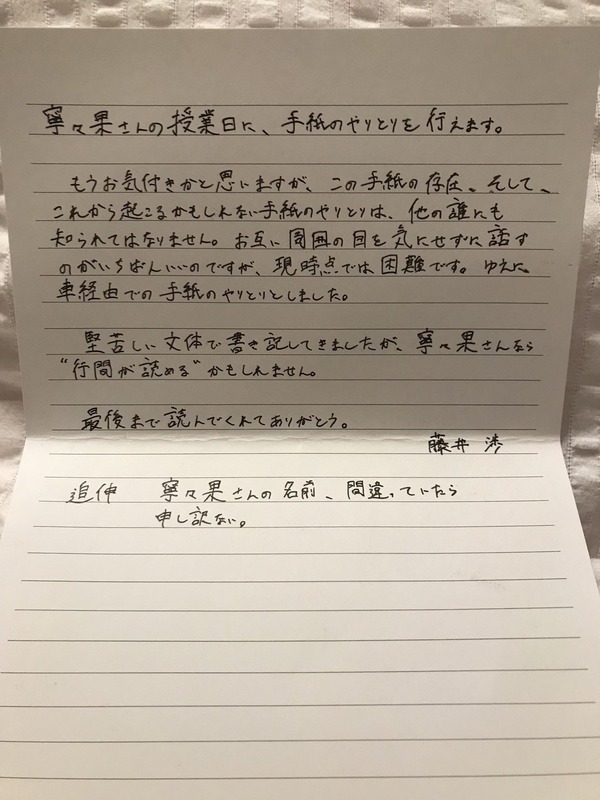 寧々果さんの授業日に、手紙のやりとりを行えます。
もうお気付きかと思いますが、この手紙の存在、そして、
これから起こるかもしれない手紙のやりとりは、他の誰にも
知られてはなりません。お互いに周囲の目を気にせずに話す
のがいちばんいいのですが、現時点では困難です。ゆえに、
車経由での手紙のやりとりとしました。
堅苦しい文体で書き記してきましたが、寧々果さんなら
"行間が読める"かもしれません。
最後まで読んでくれてありがとう。
藤井 渉
追伸 寧々果さんの名前、間違っていたら
申し訳ない。